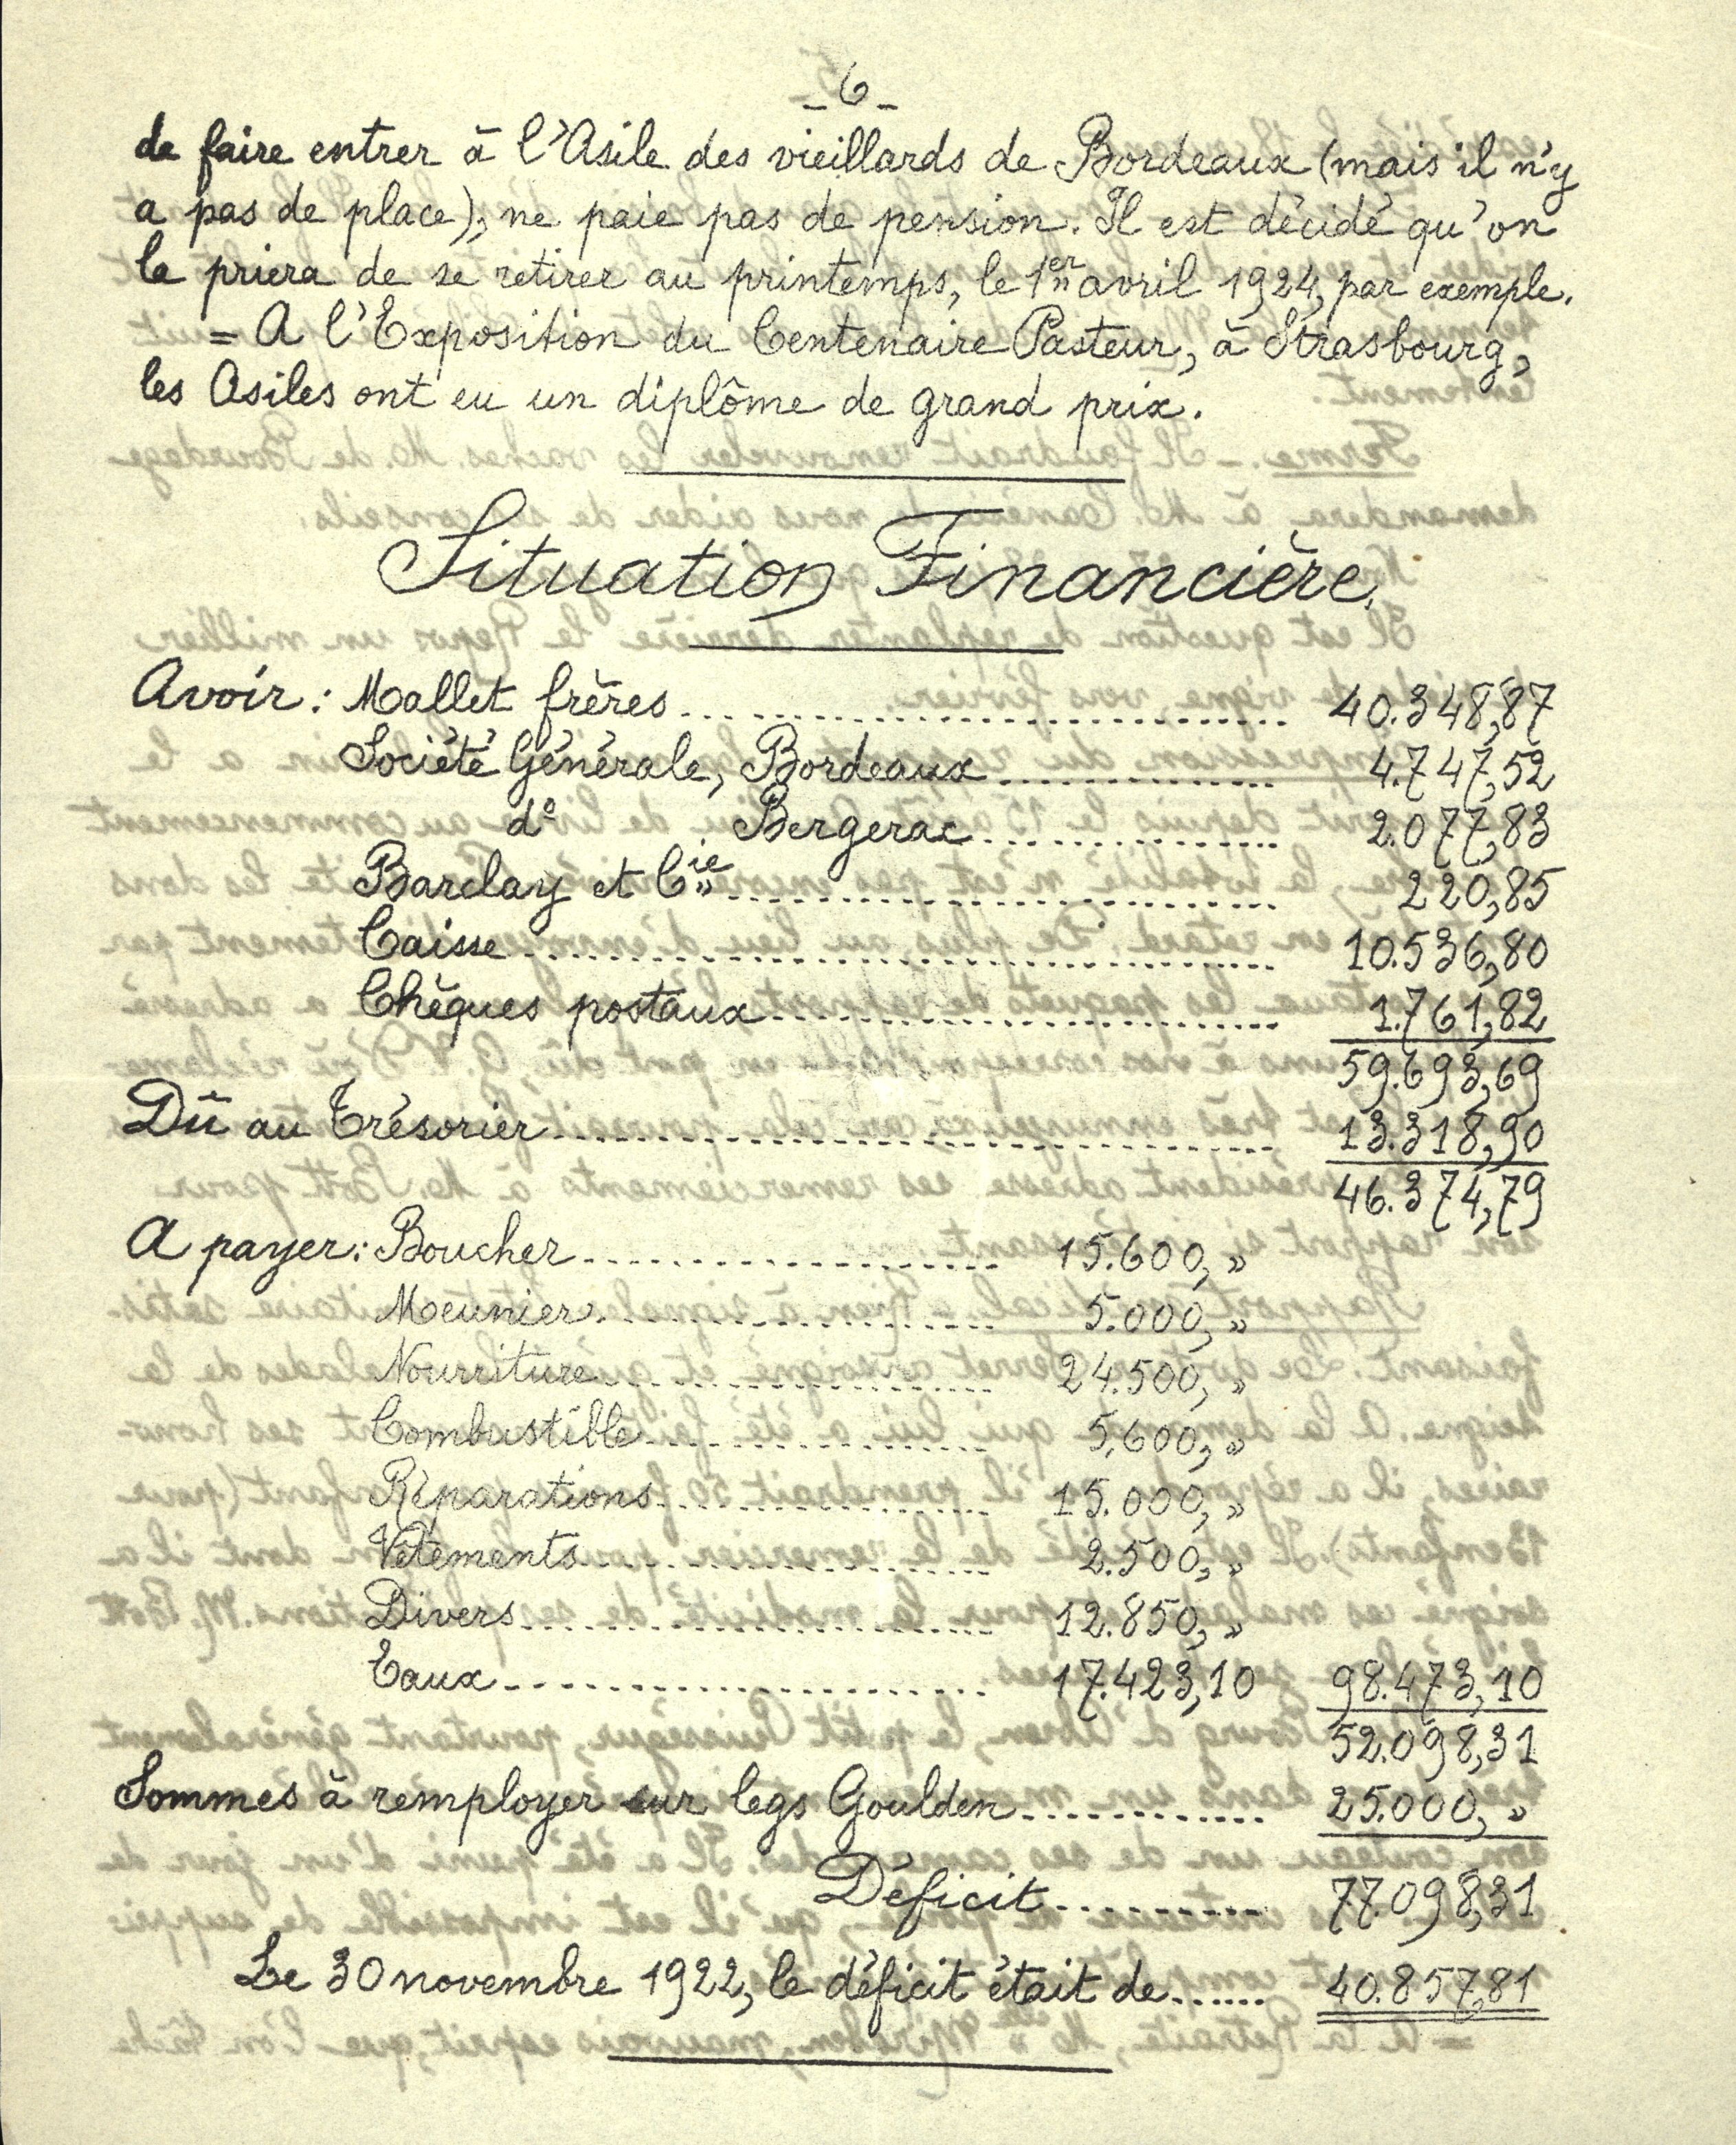 _6_
de faire entrer à l'Asile des vieillards de Bordeaux (mais il n'y
a pas de place); ne paie pas de pension. Il est décidé qu'on
le priera de se retirer au printemps, le 1er avril 1924, par exemple.
= A l'Exposition du Centenaire Pasteur, à Strasbourg,
les Asiles ont eu un diplôme de grand prix.
Situation Financière.
Avoir: Mallet frères .......... 40.348,87
Société Générale, Bordeaux .......... 4.747,52
do Bergerac .......... 2.077,83
Barclay et Cie .......... 220,85
Caisse .......... 10.536,80
Chèques postaux .......... 1.761,82
59.693,69
Dû au Trésorier .......... 13.318,90
46.374,79
A payer: Boucher .......... 15.600, »
Meunier .......... 5.000, »
Nourriture .......... 24.500, »
Combustible .......... 5,600, »
Réparations .......... 15.000, »
Vêtements .......... 2.500, »
Divers .......... 12.850, »
Eaux .......... 17.423,10 98.473,10
52.098,31
Sommes à remployer sur legs Goulden .......... 25.000, »
Déficit .......... 77.098,31
Le 30 novembre 1922, le déficit était de ...... 40.857,81